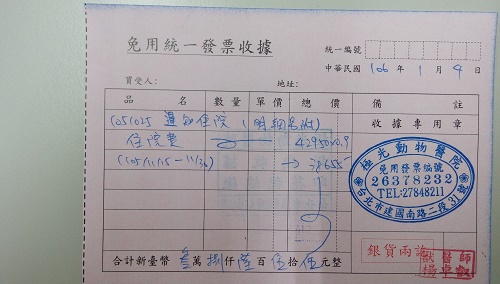 免用統一發票收據
統一編號
中華民國 106 年 1 月 9 日
買受人：
地址：
品名 數量 單價 總價 備註
1051025 住院（明細另附）
收據專用章
住院費 42950x0.9
(105/11/15-11/30) → 38655
極光動物醫院
免用發票編號
26378232
TEL:27848211
台北市建國南路二段31號
銀貨兩訖
獸醫師
楊卓叡
合計新臺幣 叁萬 捌仟 陸百 伍拾 伍元整